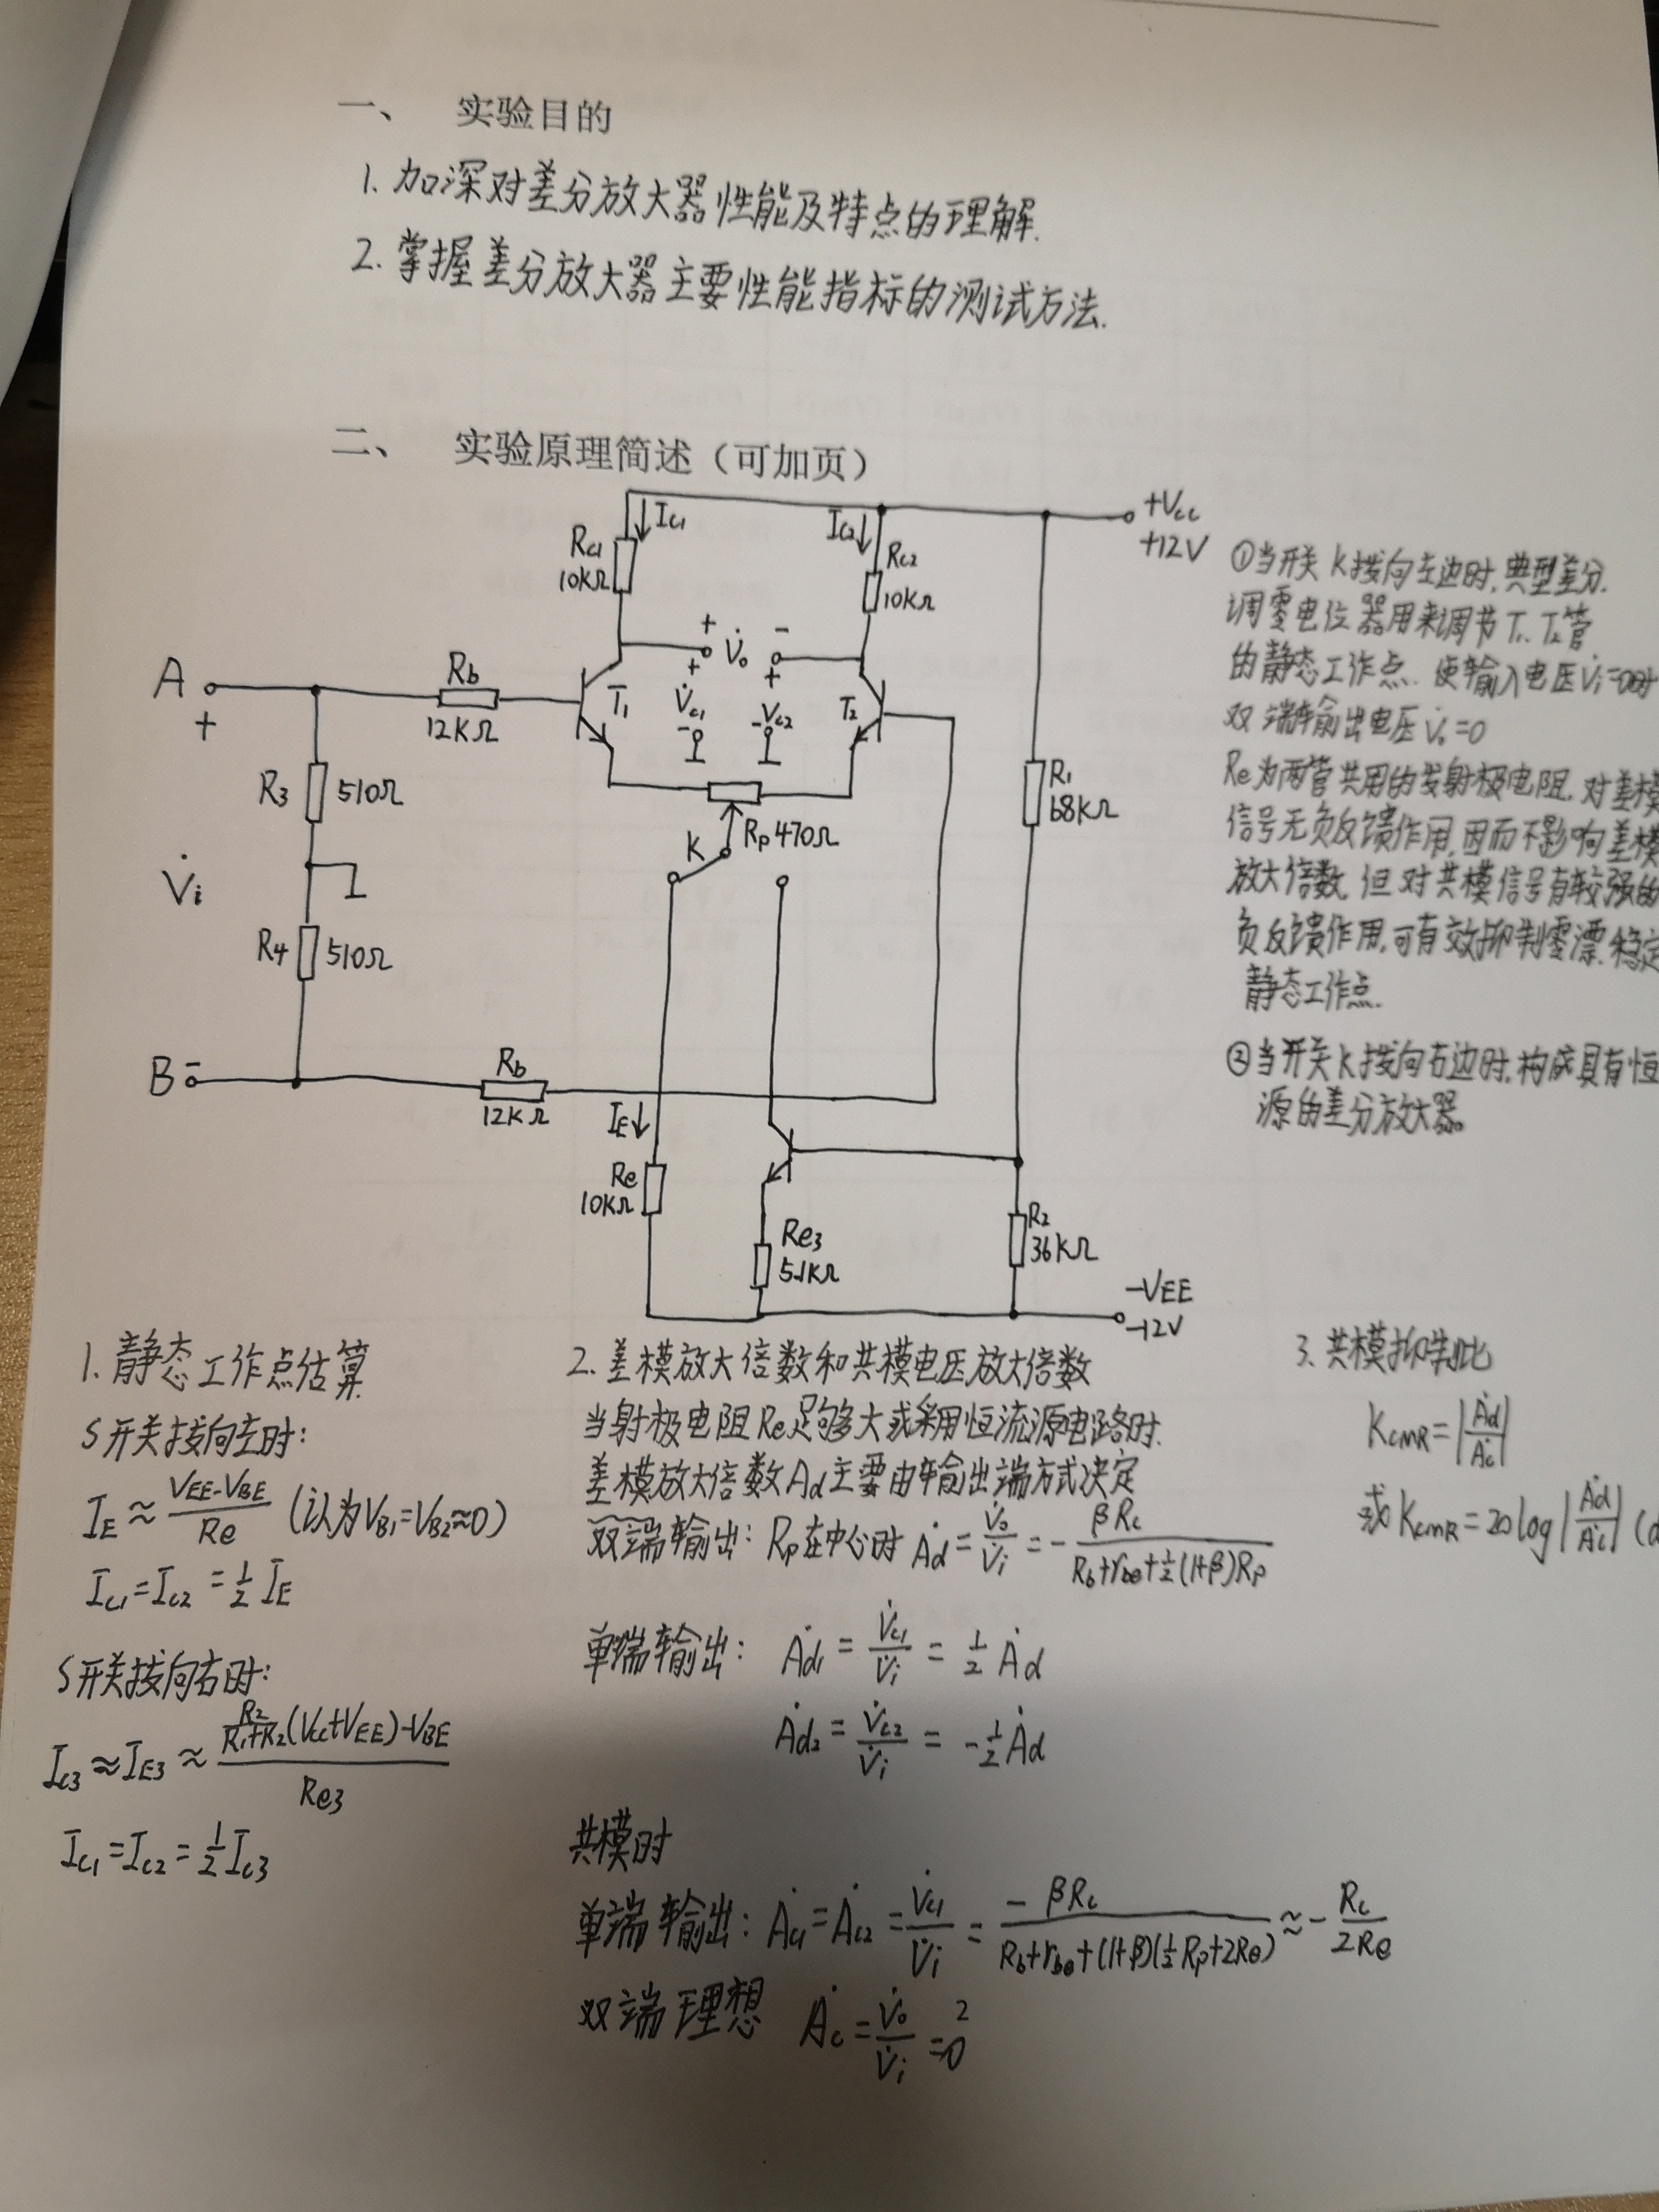 一、 实验目的
1. 加深对差分放大器性能及特点的理解.
2. 掌握差分放大器主要性能指标的测试方法.
二、 实验原理简述（可加页）
+Vcc
+12V
Ic1
Ic2
Rc1
10KΩ
Rc2
10KΩ
+ V̇o -
A
+
Rb
12KΩ
T1
+
V̇c1
-
+
Vc2
-
T2
R3 510Ω
R1
68KΩ
K
Rp 470Ω
V̇i
R4 510Ω
B -
Rb
12KΩ
IE
Re
10KΩ
Re3
5.1KΩ
R2
36KΩ
-VEE
-12V
①当开关K拨向左边时,典型差分.
调零电位器用来调节T1、T2管
的静态工作点.使输入电压V̇i=0时
双端输出电压V̇o=0
Re为两管共用的发射极电阻,对差模
信号无负反馈作用,因而不影响差模
放大倍数,但对共模信号有较强的
负反馈作用,可有效抑制零漂.稳定
静态工作点.
②当开关K拨向右边时,构成具有恒
源的差分放大器
1. 静态工作点估算
S开关拨向左时:
IE ≈ (VEE-VBE)/Re (认为VB1=VB2≈0)
Ic1=Ic2=½IE
S开关拨向右时:
Ic3≈IE3≈ (R2/(R1+R2)(Vcc+VEE)-VBE)/Re3
Ic1=Ic2=½Ic3
2. 差模放大倍数和共模电压放大倍数
当射极电阻Re足够大或采用恒流源电路时.
差模放大倍数Ad主要由输出端方式决定
双端输出: Rp在中心时 Ȧd = V̇o/V̇i = - βRc/(Rb+rbe+½(1+β)Rp)
单端输出: Ȧd1 = V̇c1/V̇i = ½Ȧd
Ȧd2 = V̇c2/V̇i = -½Ȧd
共模时
单端输出: Ȧc1=Ȧc2=V̇c1/V̇i = -βRc/(Rb+rbe+(1+β)(½Rp+2Re)) ≈ - Rc/2Re
双端理想 Ȧc = V̇o/V̇i = 0
2
3. 共模抑制比
KCMR = |Ȧd/Ȧc|
或 KCMR = 20log|Ȧd/Ȧc| (d